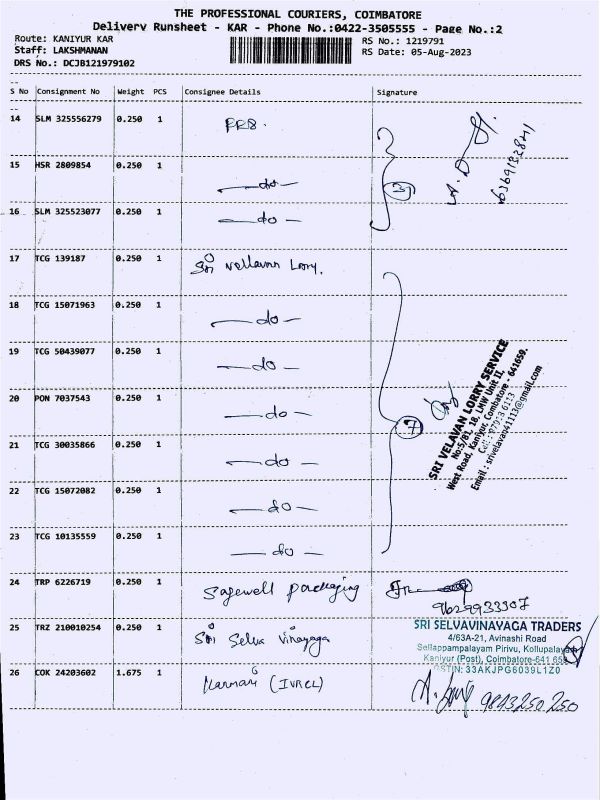 THE PROFESSIONAL COURIERS, COIMBATORE
Delivery Runsheet - KAR - Phone No.:0422-3505555 - Page No.:2
Route: KANIYUR KAR
RS No.: 1219791
Staff: LAKSHMANAN
RS Date: 05-Aug-2023
DRS No.: DCJB121979102
S No Consignment No Weight PCS Consignee Details Signature
14 SLM 325556279 0.250 1
15 HSR 2809854 0.250 1 —do—
3
16 SLM 325523077 0.250 1 —do—
17 TCG 139187 0.250 1 Sri Vellavan Lorry.
18 TCG 15071963 0.250 1 —do—
19 TCG 50439077 0.250 1 —do—
20 PON 7037543 0.250 1 —do—
7
SRI VELAVAN LORRY SERVICE
No:5/81, 18, LMW Unit II,
West Road, Kaniyur, Coimbatore - 641659.
Email : srivelavan41113@gmail.com
21 TCG 30035866 0.250 1 —do—
22 TCG 15072082 0.250 1 —do—
23 TCG 10135559 0.250 1 —do—
24 TRP 6226719 0.250 1 Safewell packaging
9629933307
25 TRZ 210010254 0.250 1 Sri Selva Vinayaga
SRI SELVAVINAYAGA TRADERS
4/63A-21, Avinashi Road
Sellappampalayam Pirivu, Kollupalayam
Kaniyur (Post), Coimbatore-641 659
GSTIN: 33AKJPG6039L1Z0
26 COK 24203602 1.675 1 (IVRCL)
9843250250